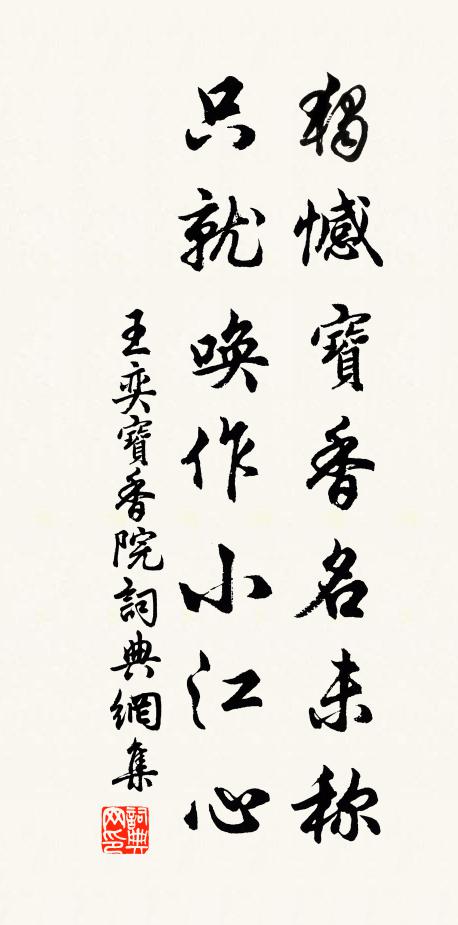 獨憾寶香名未称
只就喚作小江心
王奕寶香院詞典網集
詞典网印